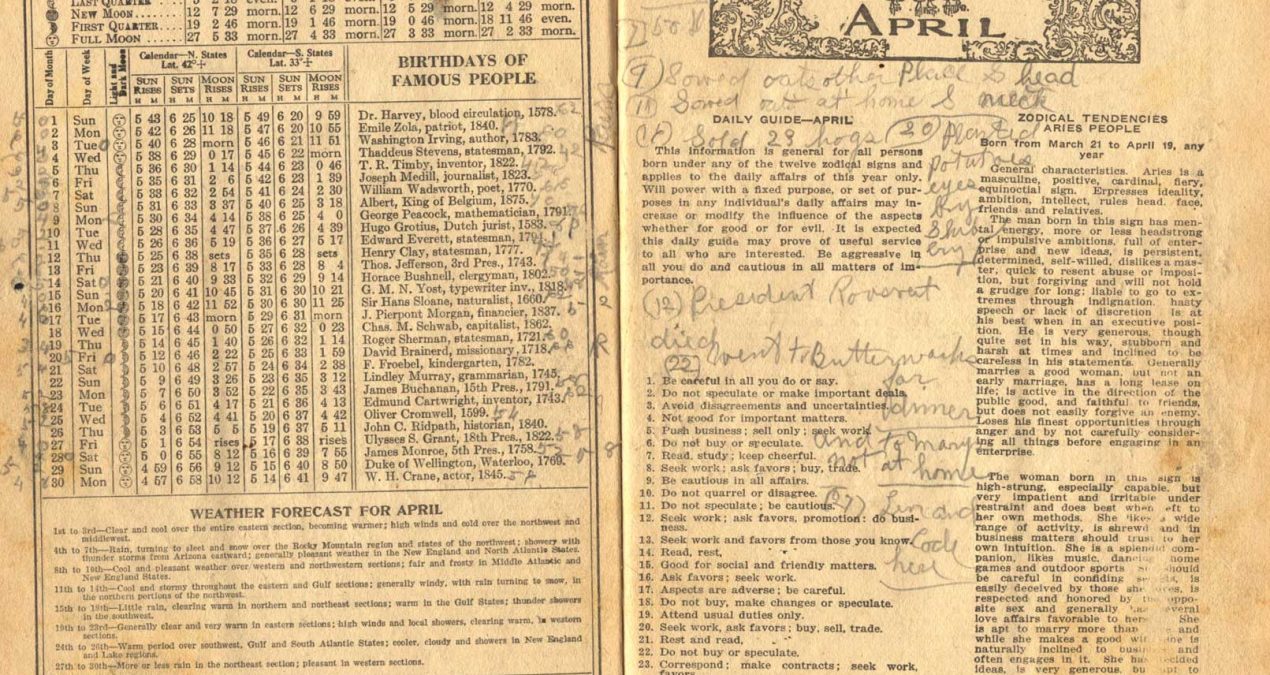 LAST QUARTER
NEW MOON........ 12 7 29 morn. 12 6 29 morn. 12 5 29 morn. 12 4 29 morn.
FIRST QUARTER.... 19 2 46 morn. 19 1 46 morn. 19 0 46 morn. 18 11 46 even.
FULL MOON........ 27 5 33 morn. 27 4 33 morn. 27 3 33 morn. 27 2 33 morn.
Day of Month Day of Week Light and Dark Moon Calendar—N. States Lat. 42° Calendar—S. States Lat. 33°
SUN RISES SUN SETS MOON RISES SUN RISES SUN SETS MOON RISES
H M H M H M H M H M H M
BIRTHDAYS OF
FAMOUS PEOPLE
1 Sun 5 43 6 25 10 18 5 49 6 20 9 59 Dr. Harvey, blood circulation, 1578.
2 Mon 5 42 6 26 11 18 5 47 6 20 10 55 Emile Zola, patriot, 1840.
3 Tue 5 40 6 28 morn 5 46 6 21 11 51 Washington Irving, author, 1783.
4 Wed 5 38 6 29 0 17 5 45 6 22 morn Thaddeus Stevens, statesman, 1792.
5 Thu 5 36 6 30 1 14 5 44 6 23 0 46 T. R. Timby, inventor, 1822.
6 Fri 5 35 6 31 2 6 5 42 6 23 1 39 Joseph Medill, journalist, 1823.
7 Sat 5 33 6 32 2 54 5 41 6 24 2 30 William Wadsworth, poet, 1770.
8 Sun 5 31 6 33 3 37 5 40 6 25 3 18 Albert, King of Belgium, 1875.
9 Mon 5 30 6 34 4 14 5 38 6 25 4 0 George Peacock, mathematician, 1791.
10 Tue 5 28 6 35 4 47 5 37 6 26 4 39 Hugo Grotius, Dutch jurist, 1583.
11 Wed 5 26 6 36 5 19 5 36 6 27 5 17 Edward Everett, statesman,
12 Thu 5 25 6 38 sets 5 35 6 28 sets Henry Clay, statesman, 1777.
13 Fri 5 23 6 39 8 17 5 33 6 28 8 4 Thos. Jefferson, 3rd Pres., 1743.
14 Sat 5 21 6 40 9 33 5 32 6 29 9 14 Horace Bushnell, clergyman, 1802.
15 Sun 5 20 6 41 10 45 5 31 6 30 10 21 G. M. N. Yost, typewriter inv., 1818.
16 Mon 5 18 6 42 11 52 5 30 6 30 11 25 Sir Hans Sloane, naturalist, 1660.
17 Tue 5 17 6 43 morn 5 29 6 31 morn J. Pierpont Morgan, financier, 1837.
18 Wed 5 15 6 44 0 50 5 27 6 32 0 23 Chas. M. Schwab, capitalist, 1862.
19 Thu 5 14 6 45 1 40 5 26 6 32 1 14 Roger Sherman, statesman, 1721.
20 Fri 5 12 6 46 2 22 5 25 6 33 1 59 David Brainerd, missionary, 1718.
21 Sat 5 10 6 48 2 57 5 24 6 34 2 38 F. Froebel, kindergarten, 1782.
22 Sun 5 9 6 49 3 26 5 23 6 35 3 12 Lindley Murray, grammarian, 1745.
23 Mon 5 7 6 50 3 52 5 22 6 35 3 43 James Buchanan, 15th Pres., 1791.
24 Tue 5 6 6 51 4 17 5 21 6 36 4 13 Edmund Cartwright, inventor, 1743.
25 Wed 5 4 6 52 4 41 5 20 6 37 4 42 Oliver Cromwell, 1599.
26 Thu 5 3 6 53 5 5 5 19 6 37 5 11 John C. Ridpath, historian, 1840.
27 Fri 5 1 6 54 rises 5 17 6 38 rises Ulysses S. Grant, 18th Pres., 1822.
28 Sat 5 0 6 55 8 12 5 16 6 39 7 55 James Monroe, 5th Pres., 1758.
29 Sun 4 59 6 56 9 12 5 15 6 40 8 50 Duke of Wellington, Waterloo, 1769.
30 Mon 4 57 6 58 10 12 5 14 6 41 9 47 W. H. Crane, actor, 1845.
WEATHER FORECAST FOR APRIL
1st to 3rd—Clear and cool over the entire eastern section, becoming warmer; high winds and cold over the northwest and
middlewest.
4th to 7th—Rain, turning to sleet and snow over the Rocky Mountain region and states of the northwest; showery with
thunder storms from Arizona eastward; generally pleasant weather in the New England and North Atlantic States.
8th to 10th—Cool and pleasant weather over western and northwestern sections; fair and frosty in Middle Atlantic and
New England States.
11th to 14th—Cool and stormy throughout the eastern and Gulf sections; generally windy, with rain turning to snow, in
the northern portions of the northwest.
15th to 18th—Little rain, clearing warm in northern and northeast sections; warm in the Gulf States; thunder showers
in the southwest.
19th to 23rd—Generally clear and very warm in eastern sections; high winds and local showers, clearing warm, in western
sections.
24th to 26th—Warm period over southwest, Gulf and South Atlantic States; cooler, cloudy and showers in New England
and Lake regions.
27th to 30th—More or less rain in the northeast section; pleasant in western sections.
APRIL
(9) Sowed oats other Place S head
(11) Sowed oats at home S neck
DAILY GUIDE—APRIL
Sold 29 hogs (20) Planted
potatoes
eyes
This information is general for all persons
born under any of the twelve zodical signs and
applies to the daily affairs of this year only.
Will power with a fixed purpose, or set of pur-
poses in any individual's daily affairs may in-
crease or modify the influence of the aspects
whether for good or for evil. It is expected
this daily guide may prove of useful service
to all who are interested. Be aggressive in
all you do and cautious in all matters of im-
portance.
(12) President Rosevert
died
(22) went to Butterwachs
for
dinner
and to many
not at home
(27) Lincard
Code
here
1. Be careful in all you do or say.
2. Do not speculate or make important deals.
3. Avoid disagreements and uncertainties.
4. Not good for important matters.
5. Push business; sell only; seek work.
6. Do not buy or speculate.
7. Read, study; keep cheerful.
8. Seek work; ask favors; buy, trade.
9. Be cautious in all affairs.
10. Do not quarrel or disagree.
11. Do not speculate; be cautious.
12. Seek work; ask favors, promotion: do busi-
ness.
13. Seek work and favors from those you know.
14. Read, rest,
15. Good for social and friendly matters.
16. Ask favors; seek work.
17. Aspects are adverse; be careful.
18. Do not buy, make changes or speculate.
19. Attend usual duties only.
20. Seek work, ask favors; buy, sell, trade.
21. Rest and read,
22. Do not buy or speculate.
23. Correspond; make contracts; seek work,
favors.
ZODICAL TENDENCIES
ARIES PEOPLE
Born from March 21 to April 19, any
year
General characteristics. Aries is a
masculine, positive, cardinal, fiery,
equinoctial sign. Erpresses ideality,
ambition, intellect, rules head. face,
friends and relatives.
The man born in this sign has men-
tal energy, more or less headstrong
or impulsive ambitions, full of enter-
prise and new ideas, is persistent,
determined, self-willed, dislikes a mas-
ter, quick to resent abuse or imposi-
tion, but forgiving and will not hold
a grudge for long; liable to go to ex-
tremes through indignation, hasty
speech or lack of discretion is at
his best when in an executive posi-
tion. He is very generous, though
quite set in his way, stubborn and
harsh at times and inclined to be
careless in his statements. Generally
marries a good woman, but not an
early marriage, has a long lease on
life; is active in the direction of the
public good, and faithful to friends,
but does not easily forgive an enemy.
Loses his finest opportunities through
anger and by not carefully consider-
ing all things before engaging in an
enterprise.
The woman born in this sign is
high-strung, especially capable, but
very impatient and irritable under
restraint and does best when left to
her own methods. She likes a wide
range of activity, is shrewd and in
business matters should trust to her
own intuition. She is a splendid com-
panion, likes music, dancing home
games and outdoor sports should
be careful in confiding
easily deceived by those she is
respected and honored by the oppo-
site sex and generally has several
love affairs favorable to her. She
is apt to marry more than and
while she makes a good is
naturally inclined to and
often engages in it. She has decided
ideas, is very generous, but apt to